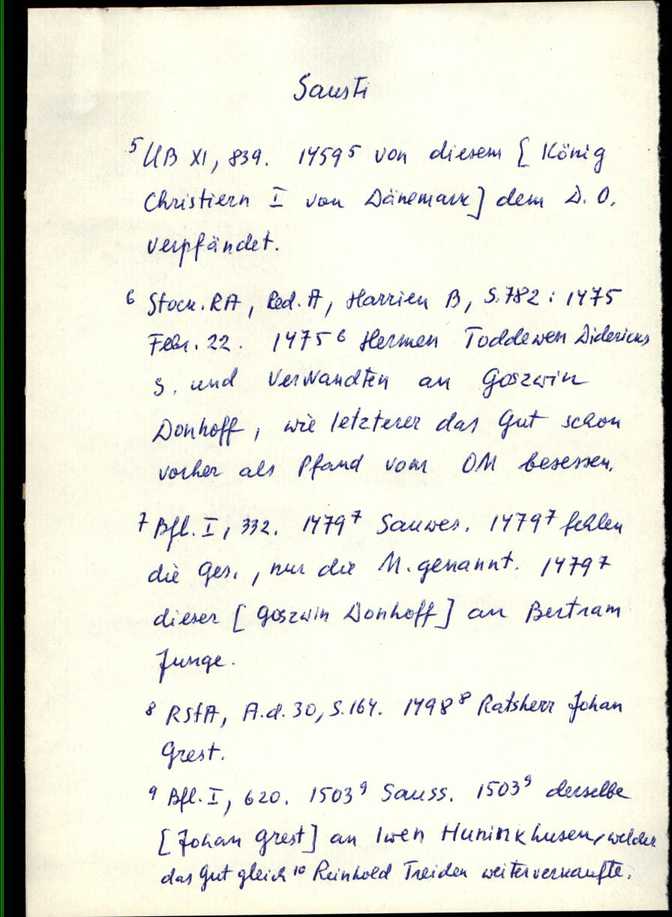 Sausti
⁵ UB XI, 839. 1459⁵ von diesem [König
Christiern I von Dänemark] dem D. O.
verpfändet.
⁶ Stock. RA, Red. A, Harrien B, S. 782 : 1475
Febr. 22. 1475⁶ Hermen Toddewen Didericus
S. und Verwandten an Goszwin
Donhoff, wie letzterer das Gut schon
vorher als Pfand vom OM besessen.
⁷ Bfl. I, 332. 1479⁷ Sauwes. 1479⁷ fehlen
die Ges., nur die M. genannt. 1479⁷
dieser [Goszwin Donhoff] an Bertram
Junge.
⁸ RStA, A.d. 30, S. 164. 1498⁸ Ratsherr Johan
Grest.
⁹ Bfl. I, 620. 1503⁹ Sauss. 1503⁹ derselbe
[Johan Grest] an Iwen Huninkhusen, welcher
das Gut gleich ¹⁰ Reinhold Treiden weiterverkaufte.